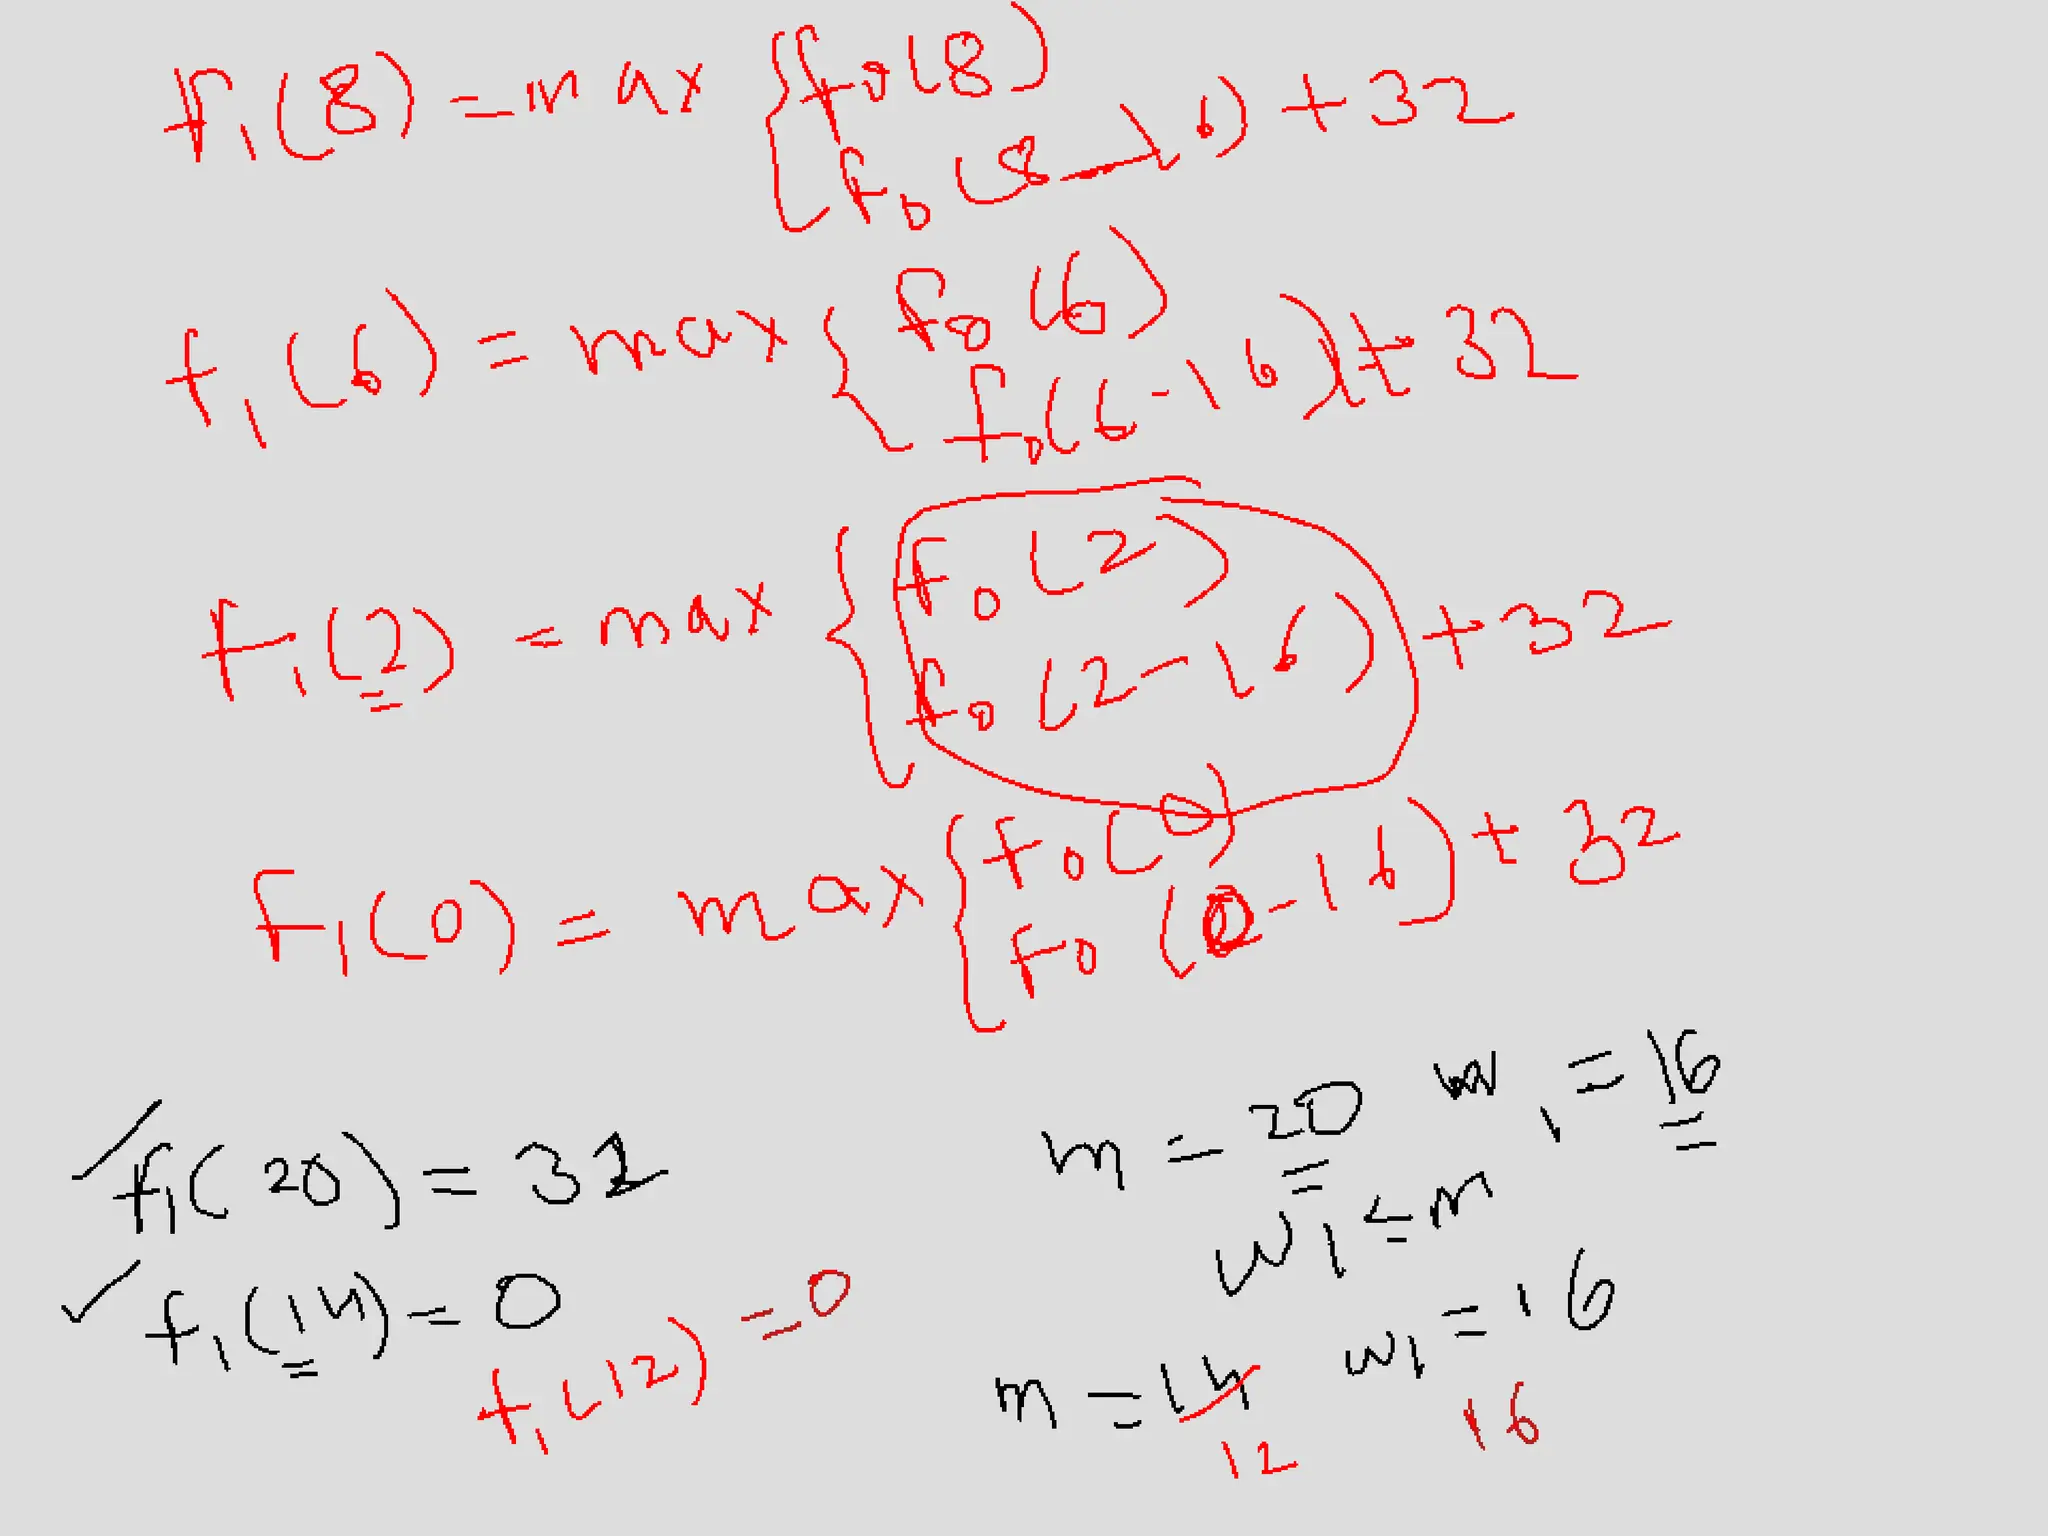 f₁(8) = max { f₀(8)
f₀(8-16) + 32
f₁(6) = max { f₀(6)
f₀(6-16) + 32
f₁(2) = max { f₀(2)
f₀(2-16) + 32
f₁(0) = max { f₀(0)
f₀(0-16) + 32
m = 20 w₁ = 16
f₁(20) = 32
w₁ ≤ m
f₁(14) = 0
m = 14 w₁ = 16
f₁(12) = 0
12 16